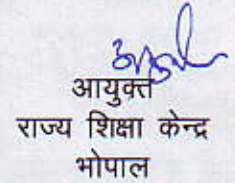 आयुक्त
राज्य शिक्षा केन्द्र
भोपाल